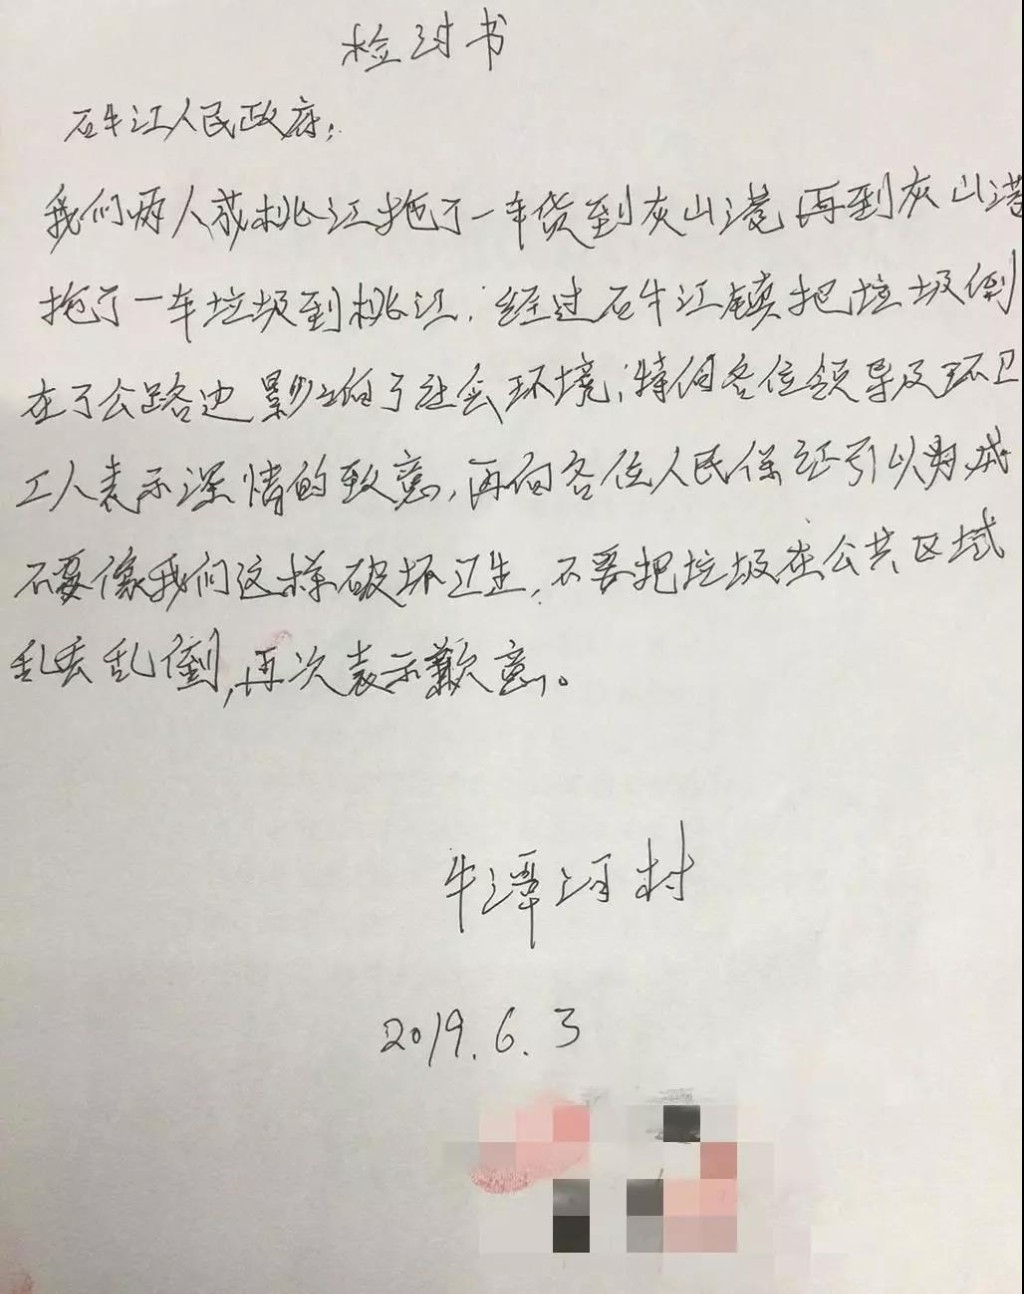 检讨书
石牛江人民政府：
我们两人从桃江拖了一车货到灰山港,再到灰山港
拖了一车垃圾到桃江.经过石牛江镇把垃圾倒
在了公路边影响了社会环境,特向各位领导及环卫
工人表示深情的致意,再向各位人民保证引以为戒
不要像我们这样破坏卫生,不要把垃圾在公共区域
乱丢乱倒,再次表示歉意。
牛潭河村
2019.6.3